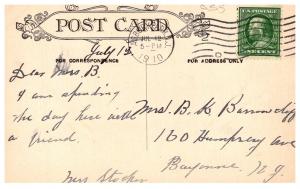 POST CARD
July 12
FOR CORRESPONDENCE
FOR ADDRESS ONLY
JUL 12
5-PM
1910
U.S. POSTAGE
ONE CENT
Dear Mrs. B.
I am spending
the day here with
a friend.
Mrs Stocker
Mrs. B. K. Barrowcliff
160 Humphrey ave
Bayonne, N.J.